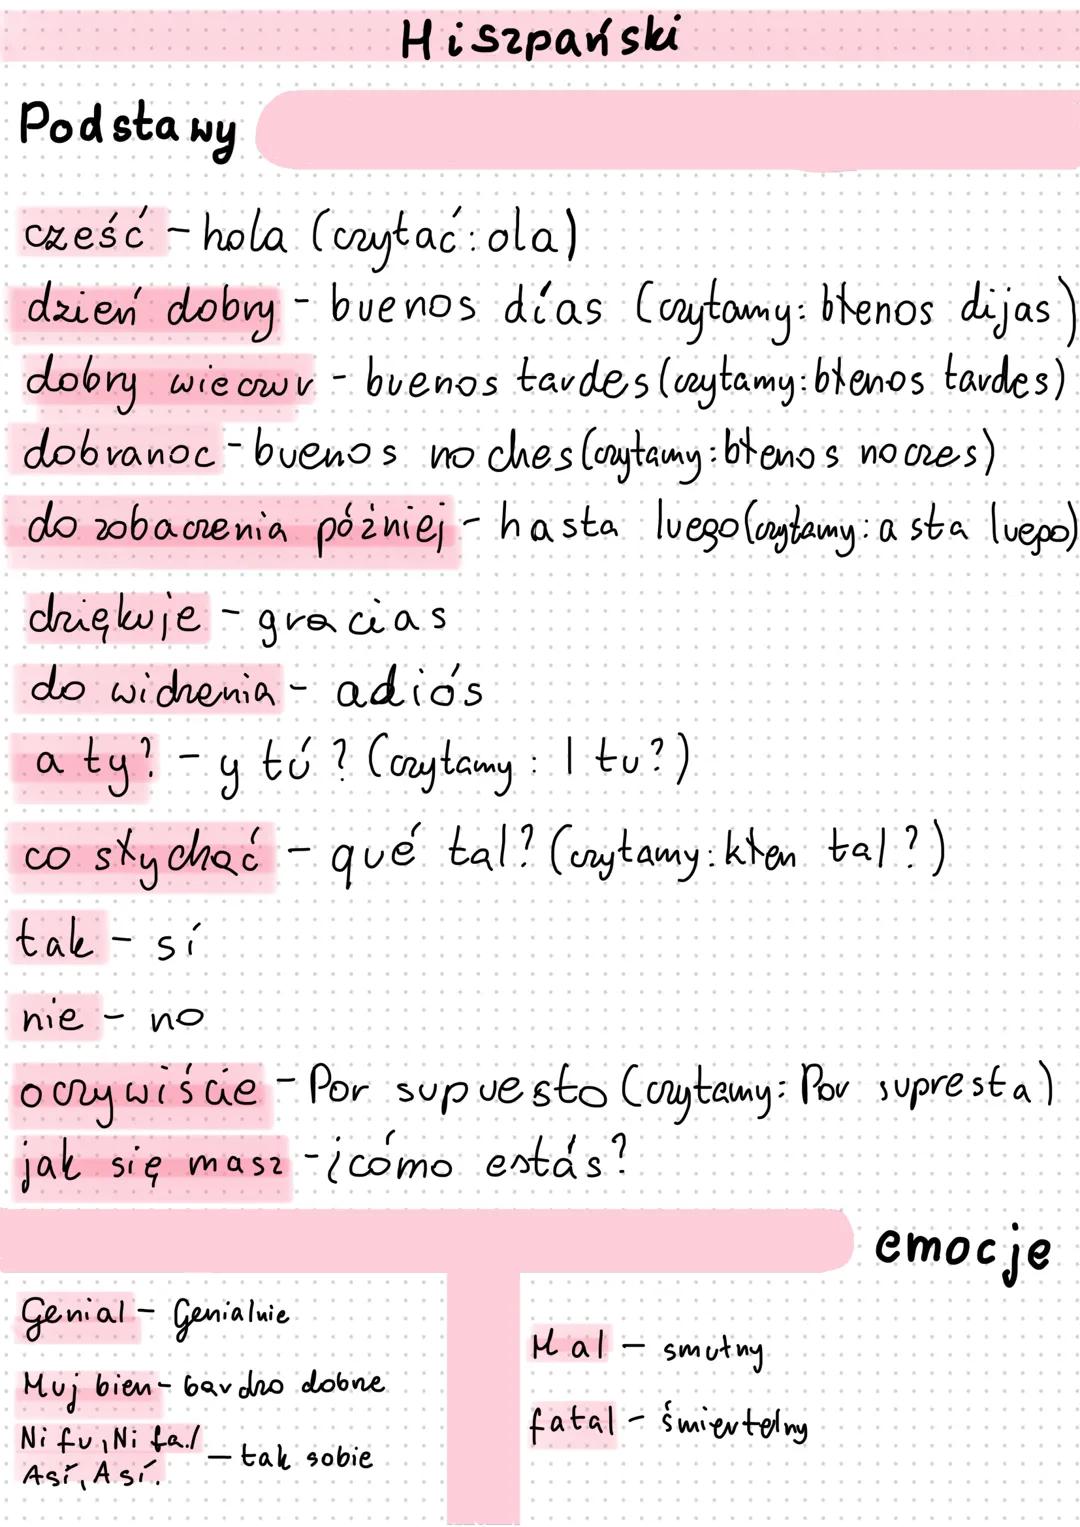 Hiszpański
Podstawy
cześć - hola (czytać: ola)
dzień dobry - buenos días (czytamy: błenos dijas)
dobry wieczur - buenos tardes (czytamy: błenos tardes)
dobranoc - buenos noches (czytamy: błenos noczes)
do zobaczenia później - hasta luego (czytamy: a sta luego)
dziękuje - gracias
do widzenia - adiós
a ty? - y tú? (czytamy: I tu?)
co słychać - qué tal? (czytamy: kłen tal?)
tak - sí
nie - no
oczywiście - Por supuesto (czytamy: Por supresta)
jak się masz - ¿cómo estás?
emocje
Genial - Genialnie
Muj bien - bardzo dobrze
Ni fu, Ni fa. /
Así, Así. - tak sobie
Mal - smutny
fatal - śmiertelny